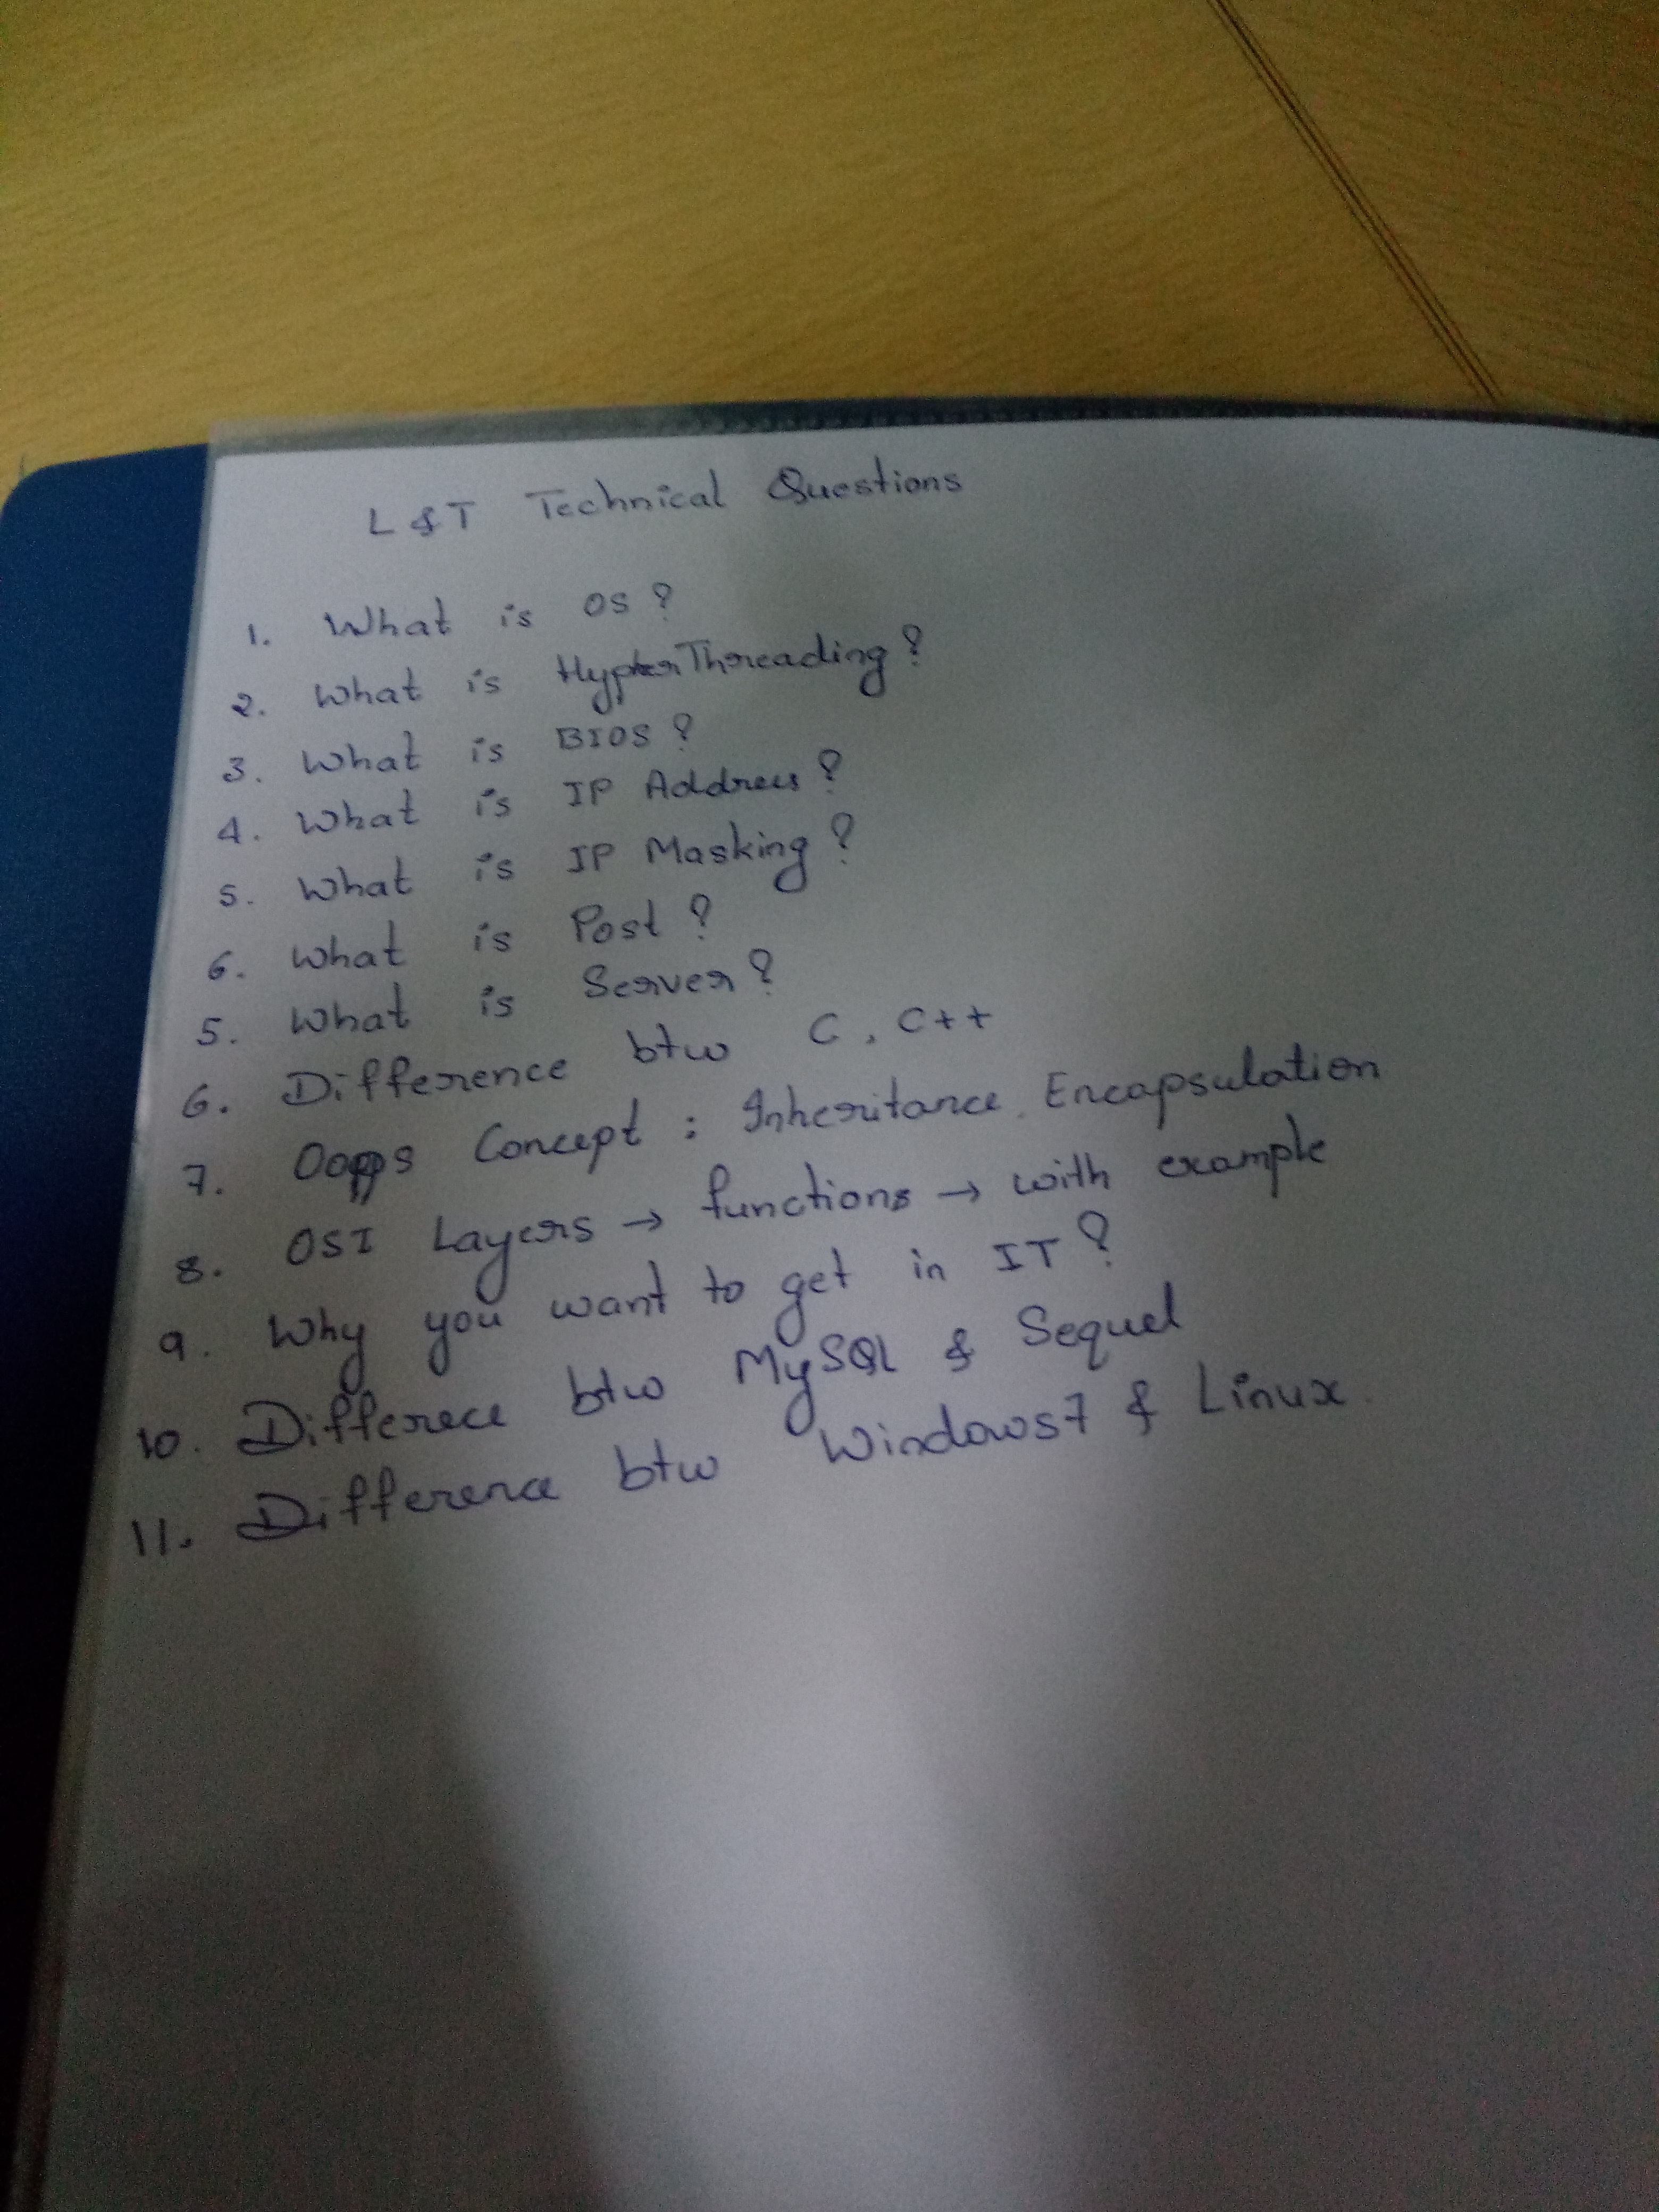 L & T Technical Questions
1. What is OS ?
2. What is HyperThreading ?
3. What is BIOS ?
4. What is IP Address ?
5. What is IP Masking ?
6. What is Post ?
5. What is Server ?
6. Difference btw C, C++
7. Oopps Concept : Inheritance, Encapsulation
8. OSI Layers → functions → with example
9. Why you want to get in IT ?
10. Differece btw MySQL & Sequel
11. Difference btw Windows7 & Linux